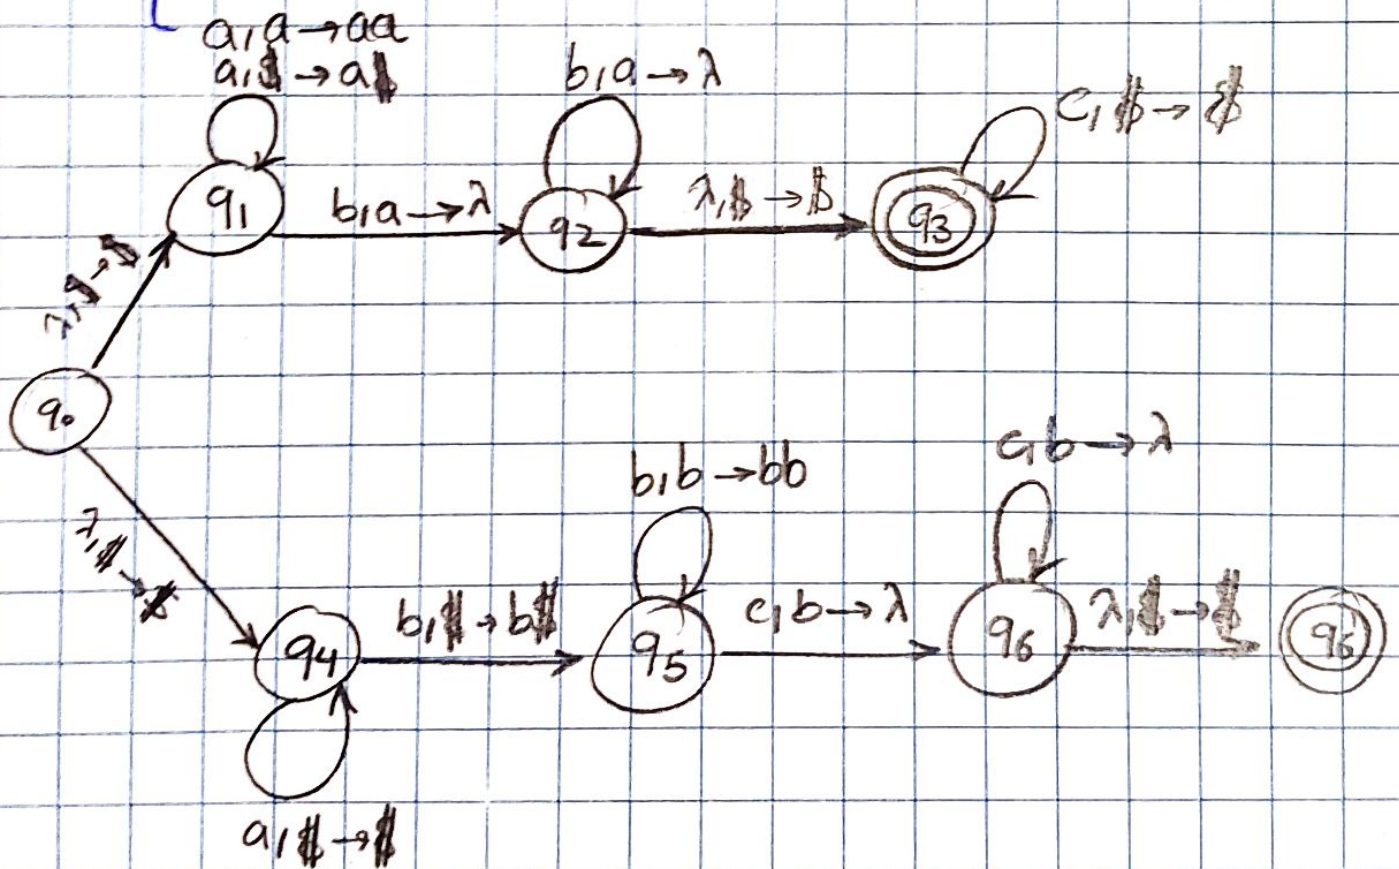 a,a→aa
a,$→a$
b,a→λ
c,$→$
q1
b,a→λ
q2
λ,$→$
q3
λ,$→$
q0
c,b→λ
b,b→bb
λ,$→$
q4
b,$→b$
q5
c,b→λ
q6
λ,$→$
q6
a,$→$